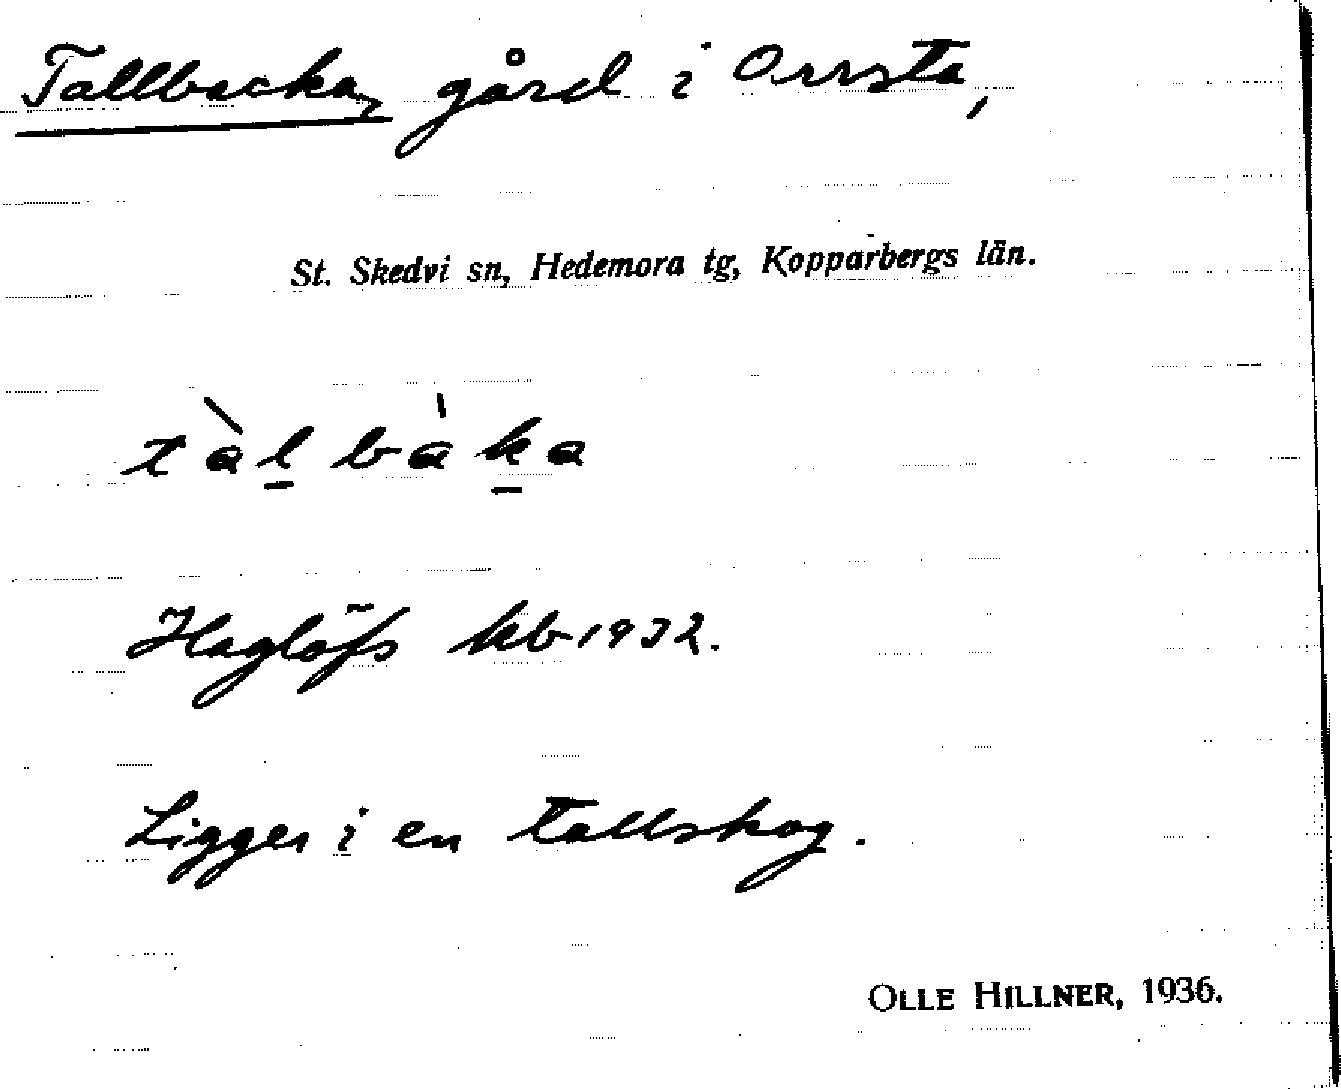 Tallbacka, gård i Orrsta,
St. Skedvi sn, Hedemora tg, Kopparbergs län.
tàl̠bàk̠a
Haglöfs kb 1932.
Ligger i en tallskog.
OLLE HILLNER, 1936.